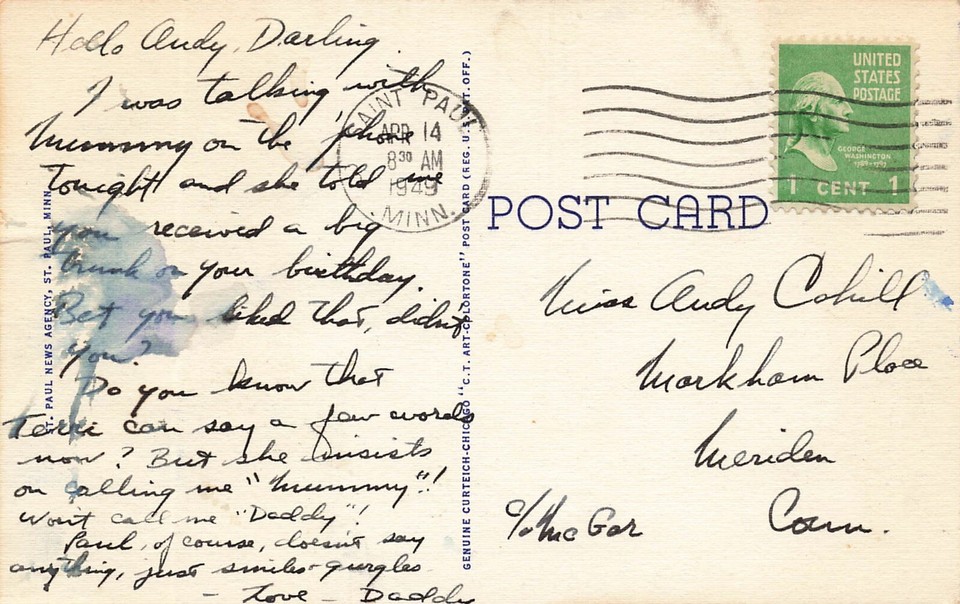 Hello Andy, Darling.
I was talking with
Mummy on the 'phone
Tonight and she told me
you received a big
trunk on your birthday.
Bet you liked that, didn't
you?
Do you know that
Terri can say a few words
now? But she insists
on calling me "Mummy"!
Won't call me "Daddy"!
Paul, of course, doesn't say
anything, just smiles + gurgles
- Love - Daddy
ST. PAUL NEWS AGENCY, ST. PAUL, MINN.
GENUINE CURTEICH-CHICAGO "C.T. ART-COLORTONE" POST CARD (REG. U.S. PAT. OFF.)
SAINT PAUL
APR 14
8 30 AM
1949
MINN.
UNITED
STATES
POSTAGE
GEORGE
WASHINGTON
1789-1797
1 CENT 1
POST CARD
Miss Andy Cahill
Markham Place
Meriden
Conn.
c/o McGar